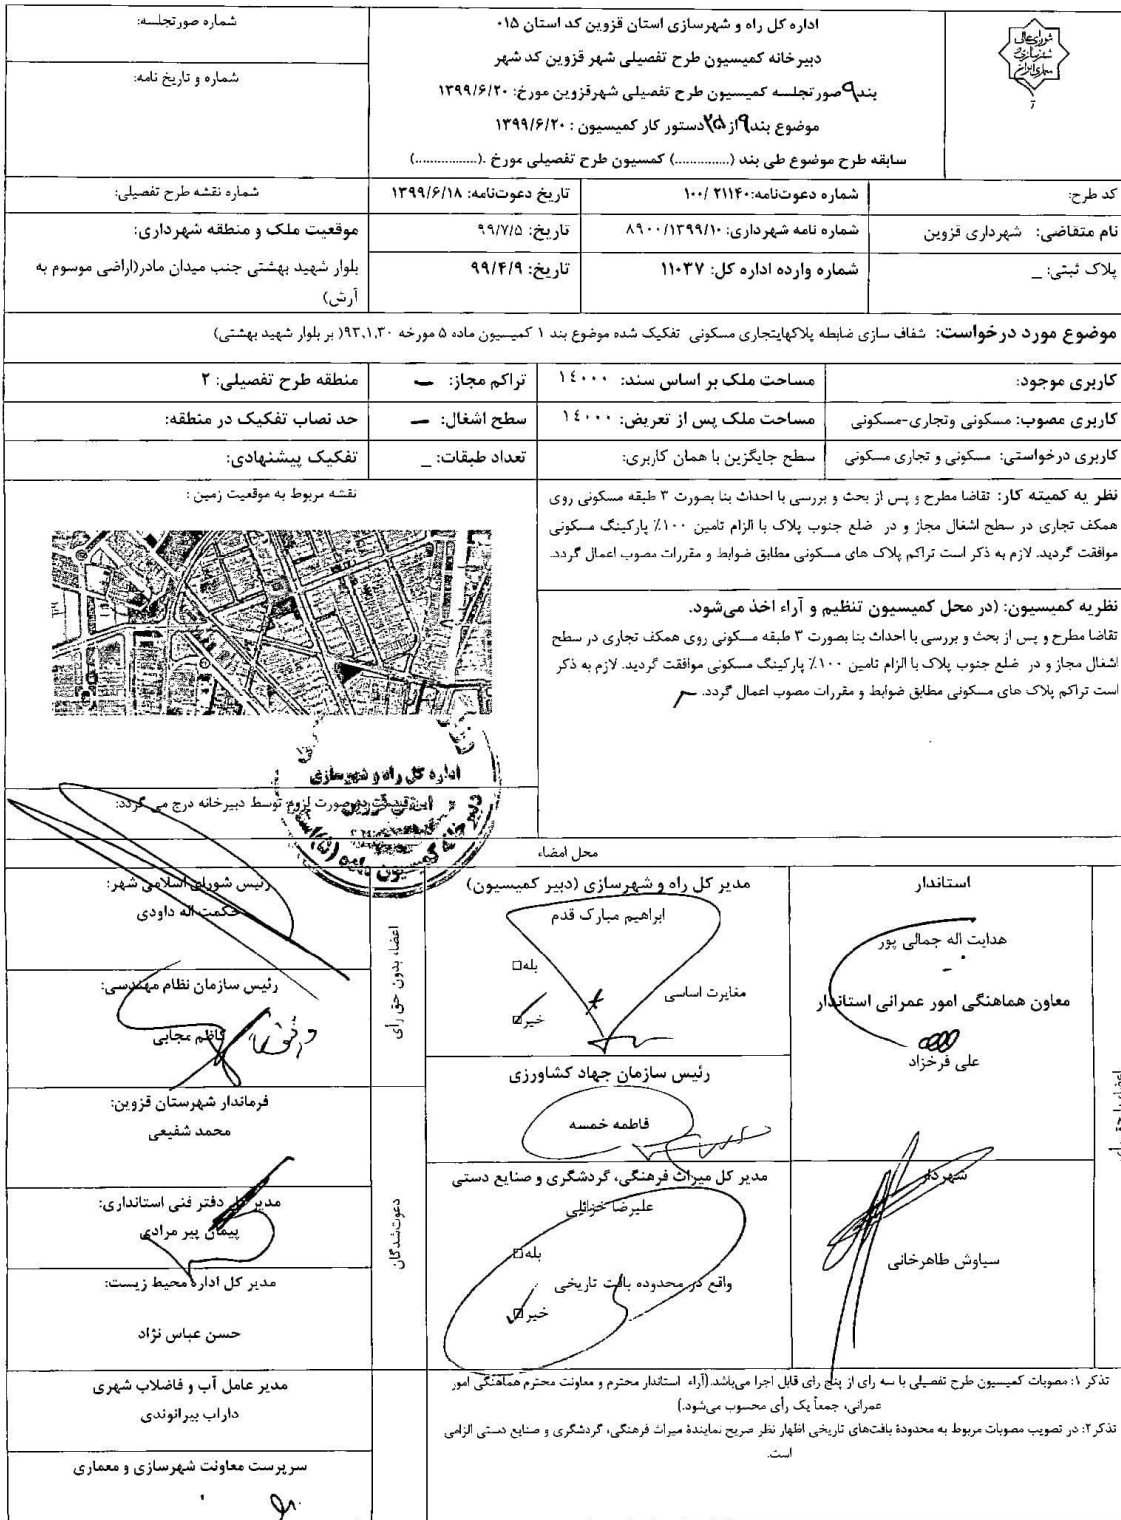 شورای عالی
شهرسازی و
معماری ایران
اداره کل راه و شهرسازی استان قزوین کد استان ۰۱۵
دبیرخانه کمیسیون طرح تفصیلی شهر قزوین کد شهر
بند ۹ صورتجلسه کمیسیون طرح تفصیلی شهرقزوین مورخ: ۱۳۹۹/۶/۲۰
موضوع بند ۹ از ۲۵ دستور کار کمیسیون : ۱۳۹۹/۶/۲۰
سابقه طرح موضوع طی بند (...............) کمسیون طرح تفصیلی مورخ .(.................)
شماره صورتجلسه:
شماره و تاریخ نامه:
کد طرح:
شماره دعوت‌نامه:۲۱۱۴۰ /۱۰۰
تاریخ دعوت‌نامه: ۱۳۹۹/۶/۱۸
شماره نقشه طرح تفصیلی:
نام متقاضی: شهرداری قزوین
شماره نامه شهرداری: ۸۹۰۰/۱۳۹۹/۱۰
تاریخ: ۹۹/۷/۵
موقعیت ملک و منطقه شهرداری:
پلاک ثبتی: _
شماره وارده اداره کل: ۱۱۰۳۷
تاریخ: ۹۹/۴/۹
بلوار شهید بهشتی جنب میدان مادر(اراضی موسوم به
آرش)
موضوع مورد درخواست: شفاف سازی ضابطه پلاکهایتجاری مسکونی تفکیک شده موضوع بند ۱ کمیسیون ماده ۵ مورخه ۹۳,۱,۳۰( بر بلوار شهید بهشتی)
کاربری موجود:
مساحت ملک بر اساس سند: ۱٤۰۰۰
تراکم مجاز: –
منطقه طرح تفصیلی: ۲
کاربری مصوب: مسکونی وتجاری-مسکونی
مساحت ملک پس از تعریض: ۱٤۰۰۰
سطح اشغال: –
حد نصاب تفکیک در منطقه:
کاربری درخواستی: مسکونی و تجاری مسکونی
سطح جایگزین با همان کاربری:
تعداد طبقات: _
تفکیک پیشنهادی:
نظر یه کمیته کار: تقاضا مطرح و پس از بحث و بررسی با احداث بنا بصورت ۳ طبقه مسکونی روی
همکف تجاری در سطح اشغال مجاز و در ضلع جنوب پلاک با الزام تامین ۱۰۰٪ پارکینگ مسکونی
موافقت گردید. لازم به ذکر است تراکم پلاک های مسکونی مطابق ضوابط و مقررات مصوب اعمال گردد.
نقشه مربوط به موقعیت زمین :
نظریه کمیسیون: (در محل کمیسیون تنظیم و آراء اخذ می‌شود.
تقاضا مطرح و پس از بحث و بررسی با احداث بنا بصورت ۳ طبقه مسکونی روی همکف تجاری در سطح
اشغال مجاز و در ضلع جنوب پلاک با الزام تامین ۱۰۰٪ پارکینگ مسکونی موافقت گردید. لازم به ذکر
است تراکم پلاک های مسکونی مطابق ضوابط و مقررات مصوب اعمال گردد.
اداره کل راه و شهرسازی
استان قزوین
دبیرخانه کمیسیون ماده (۵)
این قسمت در صورت لزوم توسط دبیرخانه درج می گردد:
محل امضاء
اعضاء با حق رأی
استاندار
هدایت اله جمالی پور
معاون هماهنگی امور عمرانی استاندار
علی فرخزاد
شهردار
سیاوش طاهرخانی
مدیر کل راه و شهرسازی (دبیر کمیسیون)
ابراهیم مبارک قدم
بله□
مغایرت اساسی
خیر□
رئیس سازمان جهاد کشاورزی
فاطمه خمسه
مدیر کل میراث فرهنگی، گردشگری و صنایع دستی
علیرضا خزائلی
بله□
واقع در محدوده بافت تاریخی
خیر□
اعضاء بدون حق رأی
رئیس شورای اسلامی شهر:
حکمت اله داودی
رئیس سازمان نظام مهندسی:
کاظم مجابی
دعوت‌شدگان
فرماندار شهرستان قزوین:
محمد شفیعی
مدیر کل دفتر فنی استانداری:
پیمان پیر مرادی
مدیر کل اداره محیط زیست:
حسن عباس نژاد
مدیر عامل آب و فاضلاب شهری
داراب بیرانوندی
سرپرست معاونت شهرسازی و معماری
تذکر ۱: مصوبات کمیسیون طرح تفصیلی با سه رای از پنج رای قابل اجرا می‌باشد.(آراء استاندار محترم و معاونت محترم هماهنگی امور
عمرانی، جمعاً یک رأی محسوب می‌شود.)
تذکر ۲: در تصویب مصوبات مربوط به محدودهٔ بافت‌های تاریخی اظهار نظر صریح نمایندهٔ میراث فرهنگی، گردشگری و صنایع دستی الزامی
است.